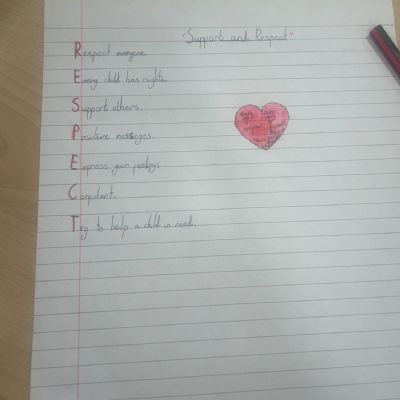 "Support and Respect"
Respect everyone.
Every child has rights.
Support others.
Positive messeges.
Express your feelings
Confident.
Try to help a child in need.